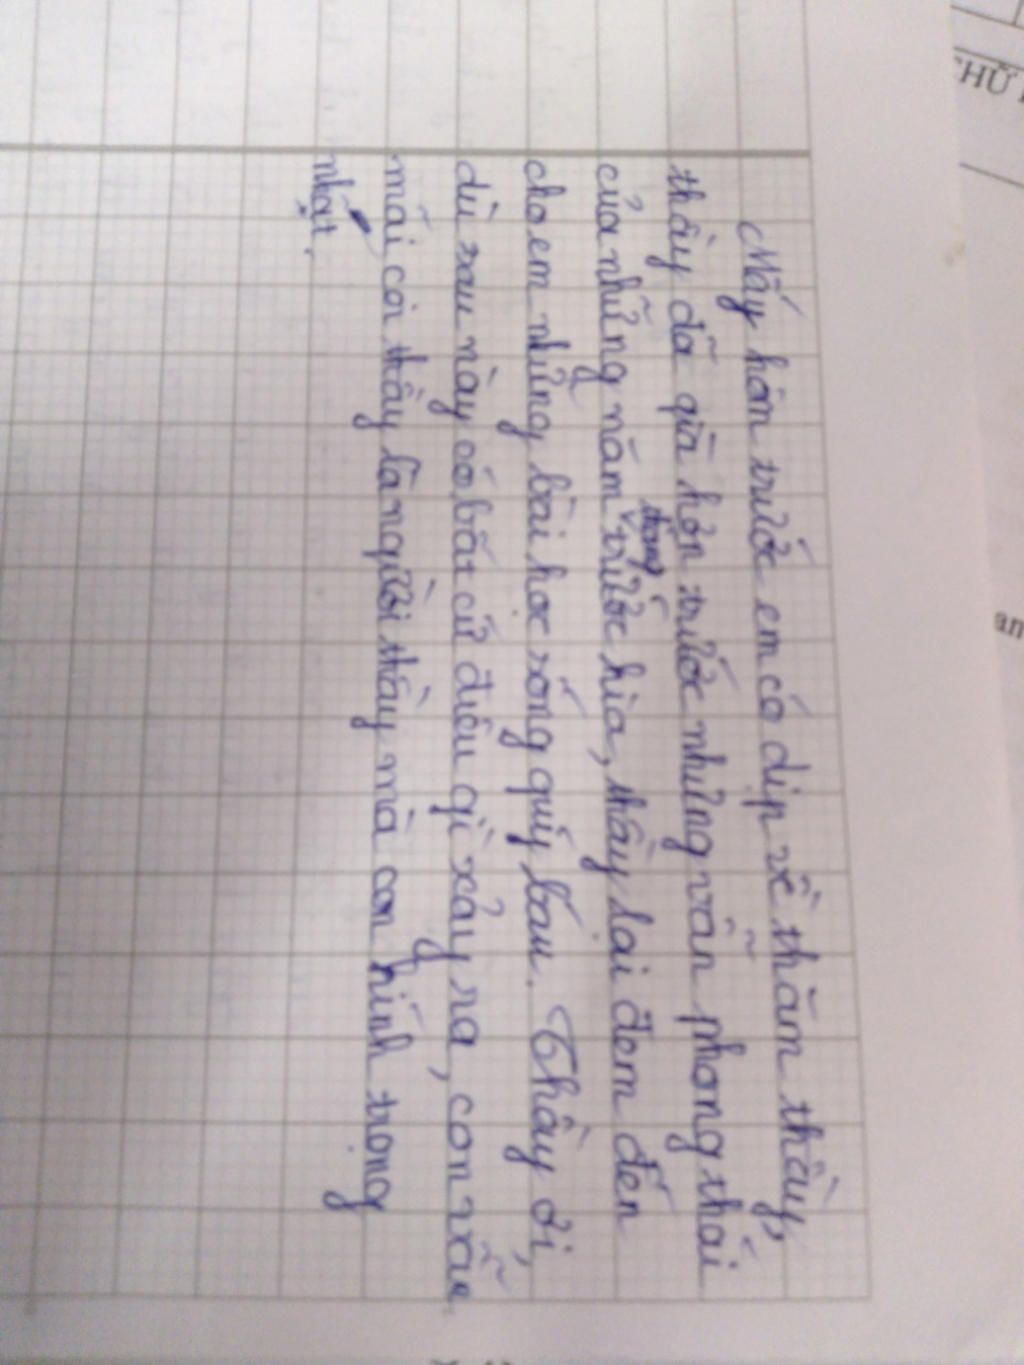 Mấy hôm trước em có dịp về thăm thầy,
thầy đã già hơn trước nhưng vẫn phong thái
của những năm tháng trước kia, thầy lại đem đến
cho em những bài học sống quý báu. Thầy ơi,
dù sau này có bất cứ điều gì xảy ra, con vẫn
mãi coi thầy là người thầy mà con kính trọng
nhất.
CHỮ
an